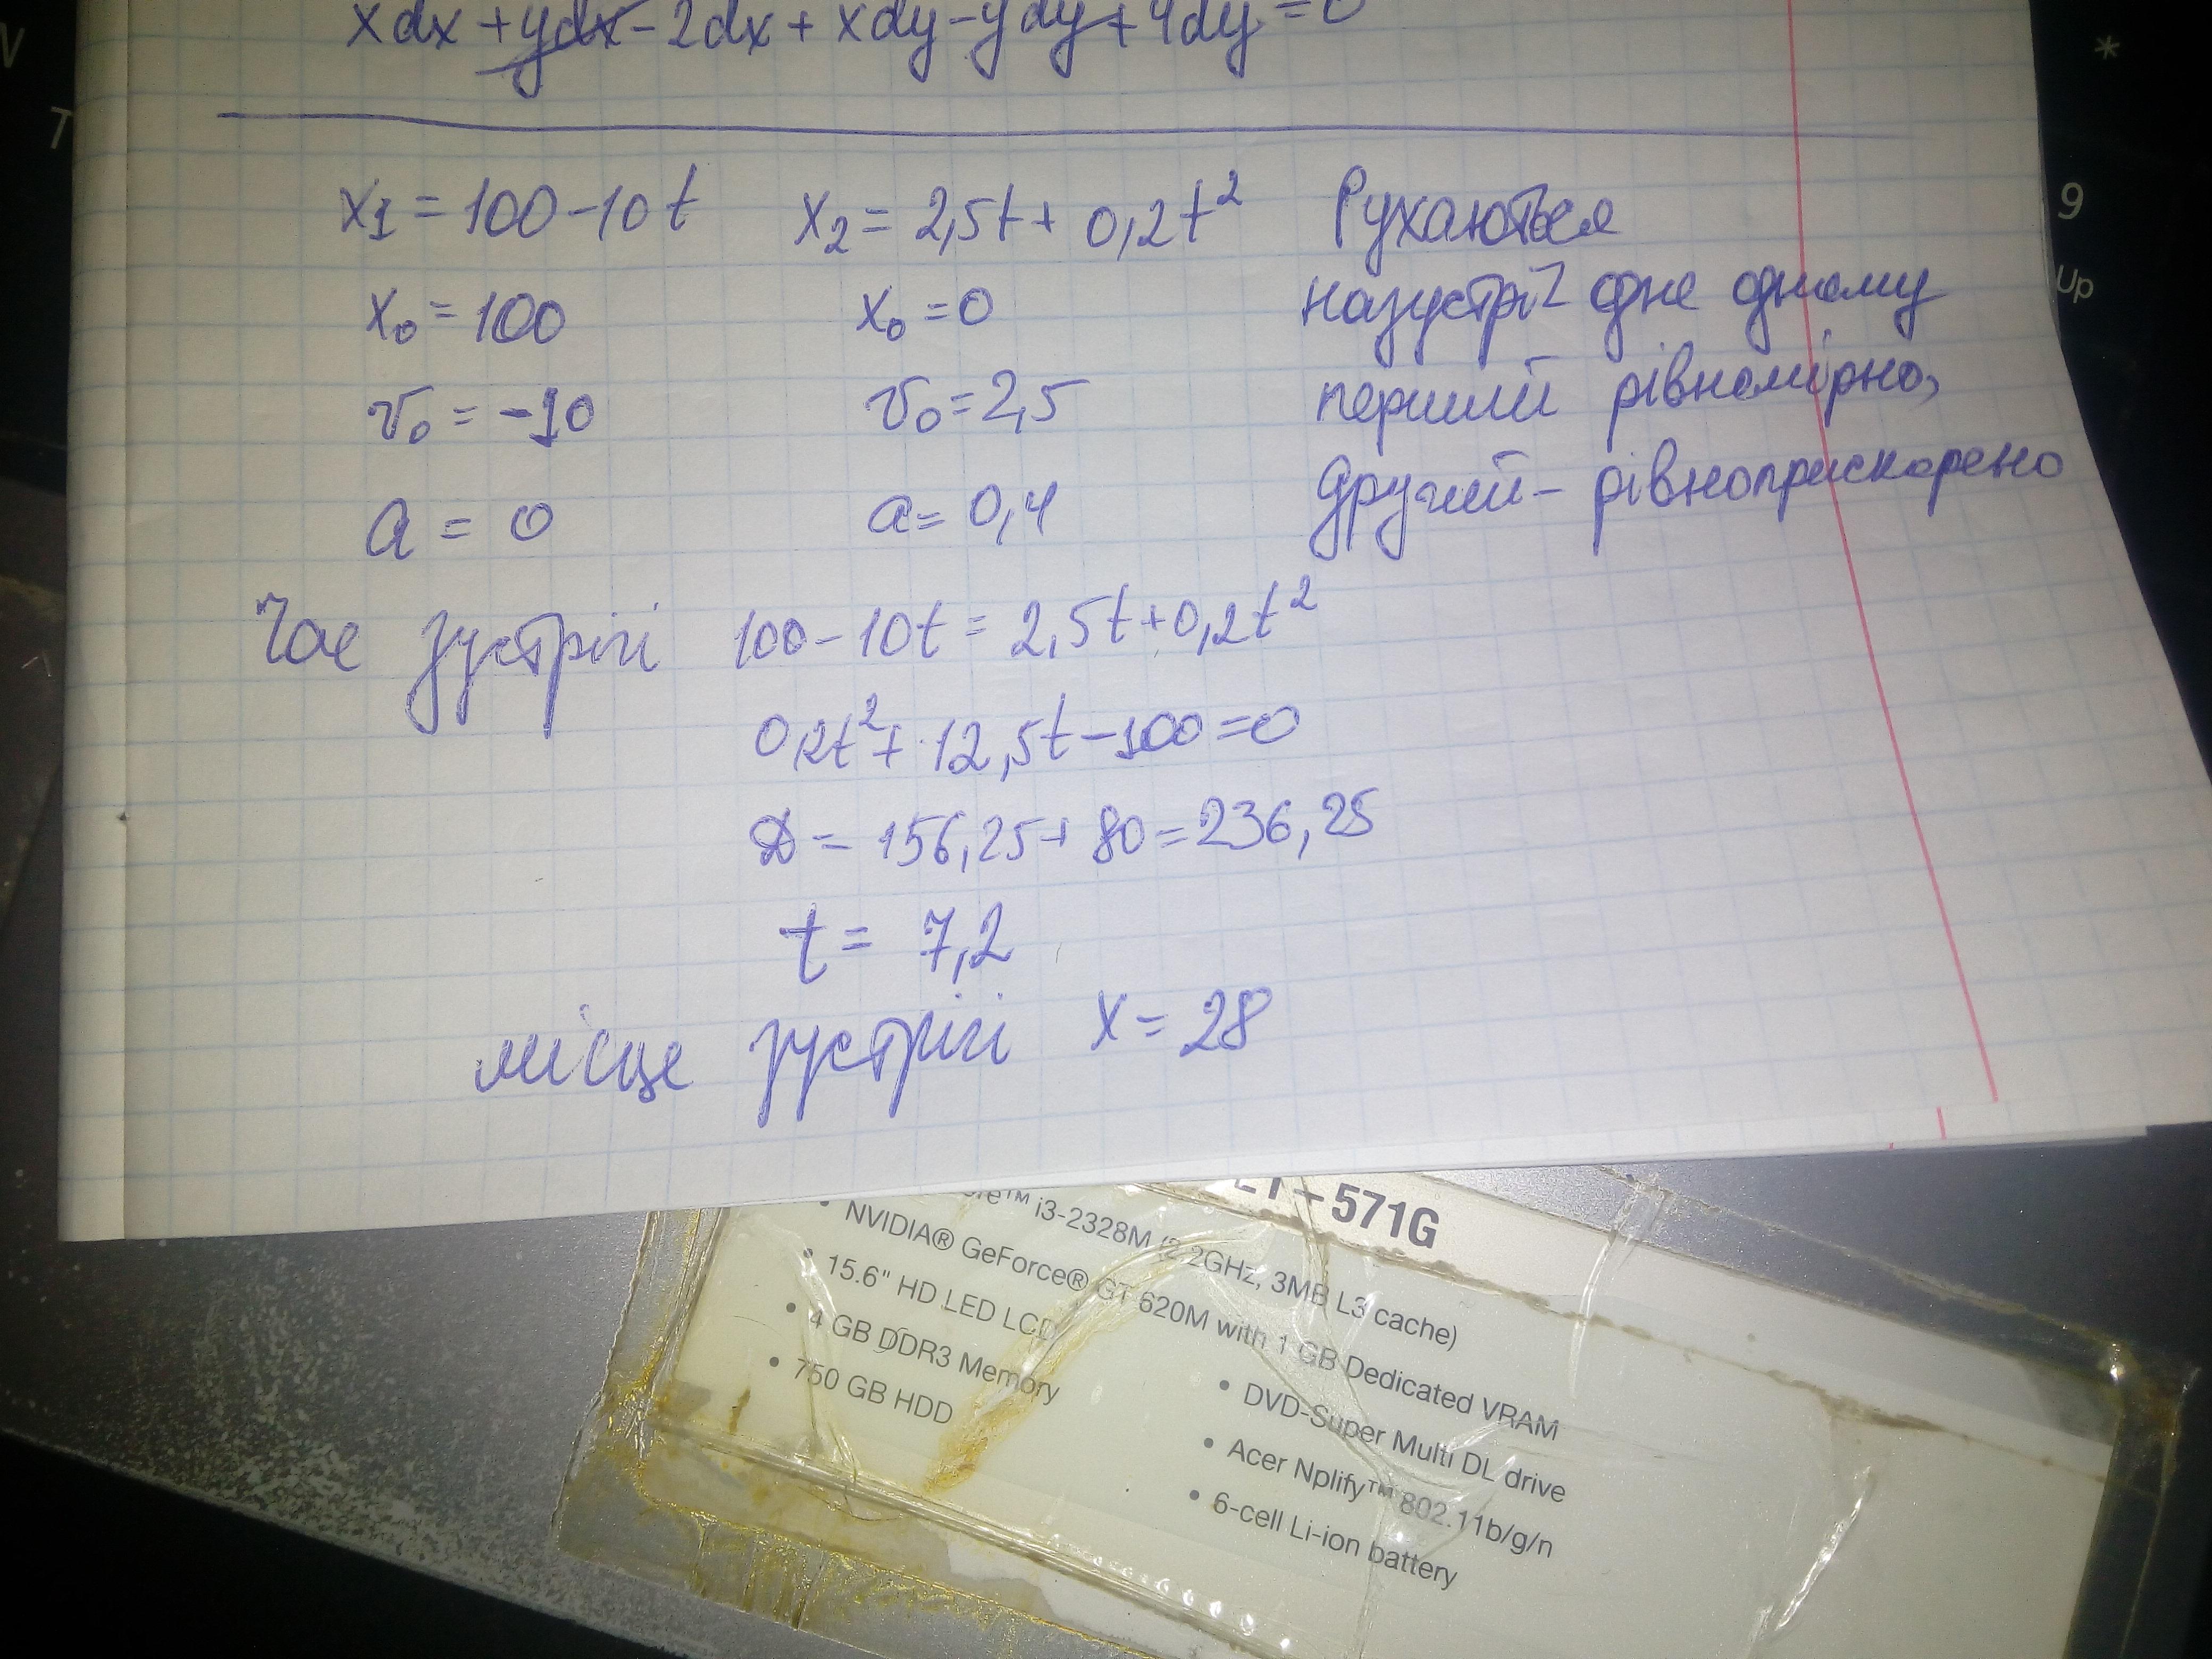 xdx + ydx - 2dx + xdy - ydy + 4dy = 0
x₁ = 100 - 10t x₂ = 2,5t + 0,2t² Рухаються
x₀ = 100 x₀ = 0 назустріч одне одному
v₀ = -10 v₀ = 2,5 перший рівномірно,
a = 0 a = 0,4 другий - рівноприскорено
Час зустрічі 100 - 10t = 2,5t + 0,2t²
0,2t² + 12,5t - 100 = 0
D = 156,25 + 80 = 236,25
t = 7,2
місце зустрічі x = 28
9
Up
*
T
-571G
i3-2328M (2.2GHz, 3MB L3 cache)
• NVIDIA® GeForce® GT 620M with 1 GB Dedicated VRAM
• 15.6" HD LED LCD
• 4 GB DDR3 Memory
• 750 GB HDD
• DVD-Super Multi DL drive
• Acer Nplify™ 802.11b/g/n
• 6-cell Li-ion battery